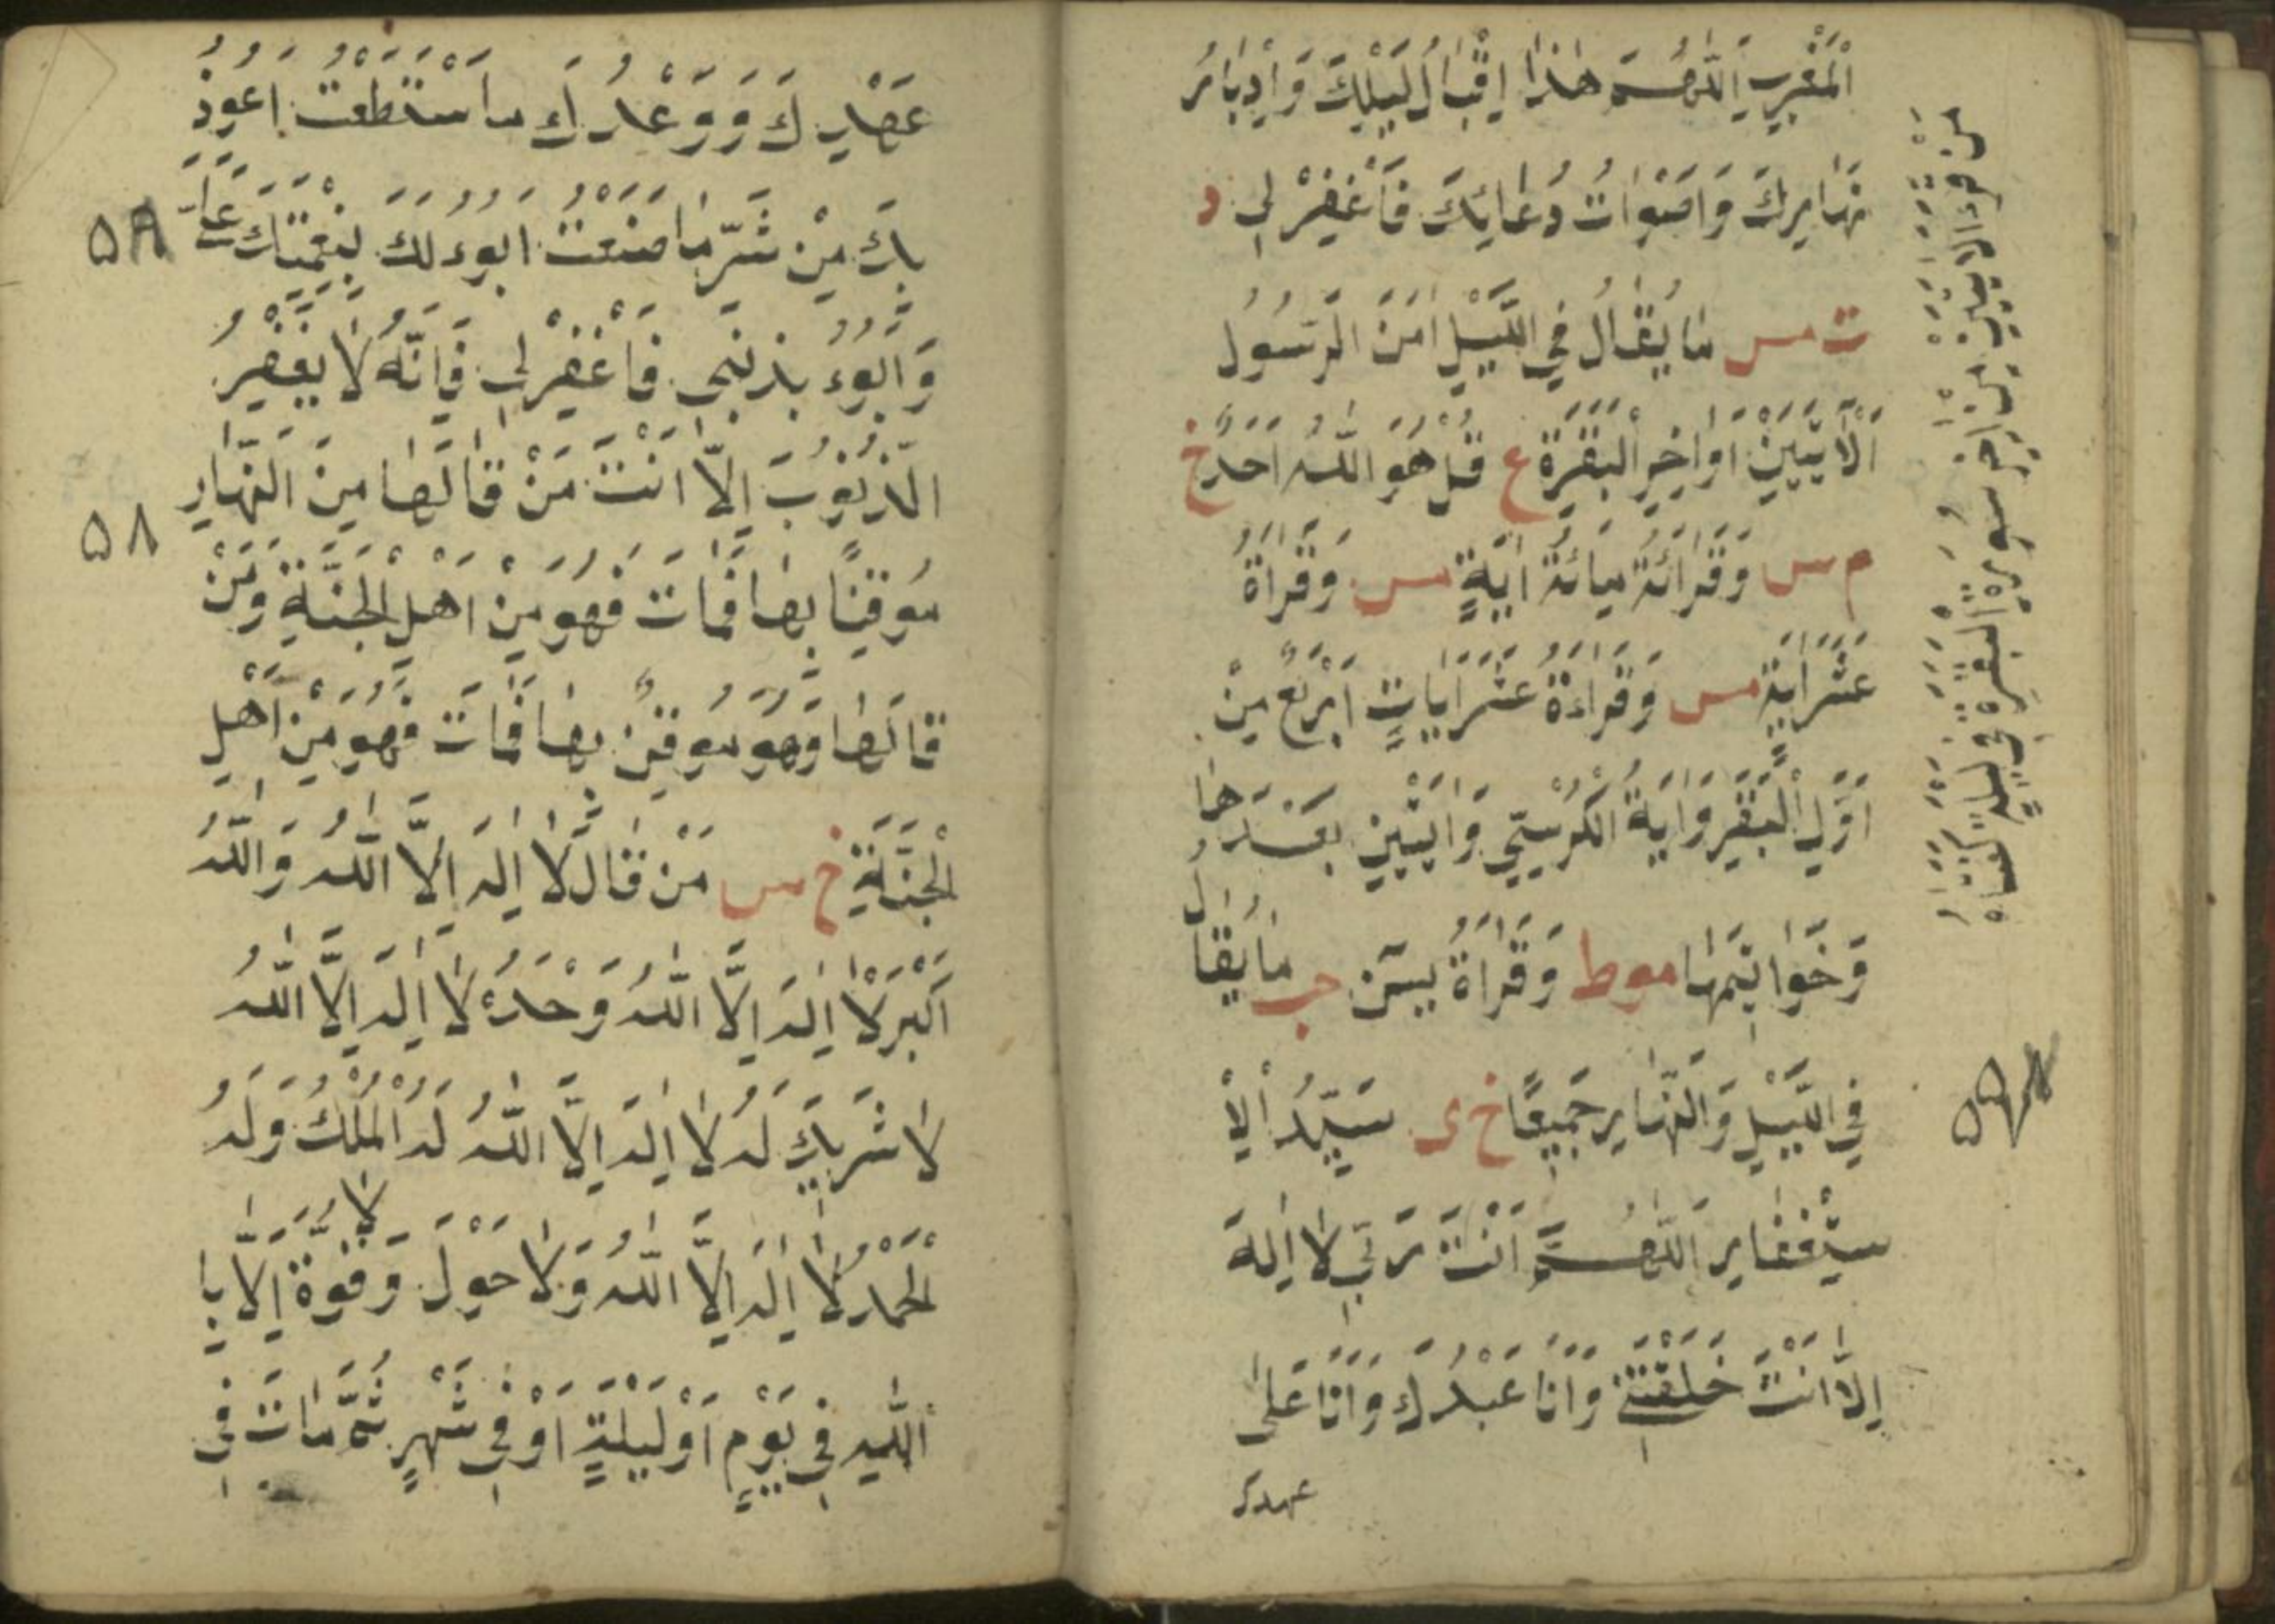 الْمَغْرِبِ اَللّٰهُمَّ هٰذَا اِقْبَالُ لَيْلِكَ وَاِدْبَارُ
نَهَارِكَ وَاَصْوَاتُ دُعَائِكَ فَاغْفِرْ لِي د
ت مس مَا يُقَالُ فِي اللَّيْلِ اٰمَنَ الرَّسُولُ
اَلْاٰيَتَيْنِ اَوَاخِرِ الْبَقَرَةِ ع قُلْ هُوَ اللّٰهُ اَحَدٌ خ
م س وَقَرَائَةُ مِائَةِ اٰيَةٍ مس وَقَرَاةُ
عَشْرَ اٰيَةٍ مس وَقَرَاءَةُ عَشْرَ اٰيَاتٍ اَرْبَعٌ مِنْ
اَوَّلِ الْبَقَرِ وَاٰيَةُ الْكُرْسِيِّ وَاٰيَتَيْنِ بَعْدَهَا
وَخَوَاتِمَهَا موط وَقَرَاةُ يٰسٓ حب مَا يُقَالُ
فِي اللَّيْلِ وَالنَّهَارِ جَمِيعًا خ ى سَيِّدُ الْاِ
سْتِغْفَارِ اَللّٰهُمَّ اَنْتَ رَبِّي لَا اِلٰهَ
اِلَّا اَنْتَ خَلَقْتَنِي وَاَنَا عَبْدُكَ وَاَنَا عَلٰى
عهدك
مَنْ قَرَءَ الْاٰيَتَيْنِ مِنْ اٰخِرِ سُورَةِ الْبَقَرَةِ فِي لَيْلَةٍ كَفَتَاهُ
عَهْدِكَ وَوَعْدِكَ مَا اسْتَطَعْتُ اَعُوذُ
بِكَ مِنْ شَرِّ مَا صَنَعْتُ اَبُوءُ لَكَ بِنِعْمَتِكَ عَلَيَّ
۵۸
وَاَبُوءُ بِذَنْبِي فَاغْفِرْ لِي فَاِنَّهُ لَا يَغْفِرُ
الذُّنُوبَ اِلَّا اَنْتَ مَنْ قَالَهَا مِنَ النَّهَارِ
۵۸
مُوقِنًا بِهَا فَمَاتَ فَهُوَ مِنْ اَهْلِ الْجَنَّةِ وَمَنْ
قَالَهَا وَهُوَ مُوقِنٌ بِهَا فَمَاتَ فَهُوَ مِنْ اَهْلِ
الْجَنَّةِ خ س مَنْ قَالَ لَا اِلٰهَ اِلَّا اللّٰهُ وَاللّٰهُ
اَكْبَرُ لَا اِلٰهَ اِلَّا اللّٰهُ وَحْدَهُ لَا اِلٰهَ اِلَّا اللّٰهُ
لَا شَرِيكَ لَهُ لَا اِلٰهَ اِلَّا اللّٰهُ لَهُ الْمُلْكُ وَلَهُ
الْحَمْدُ لَا اِلٰهَ اِلَّا اللّٰهُ وَلَا حَوْلَ وَلَا قُوَّةَ اِلَّا بِا
اللّٰهِ فِي يَوْمٍ اَوْ لَيْلَةٍ اَوْ فِي شَهْرٍ ثُمَّ مَاتَ فِي